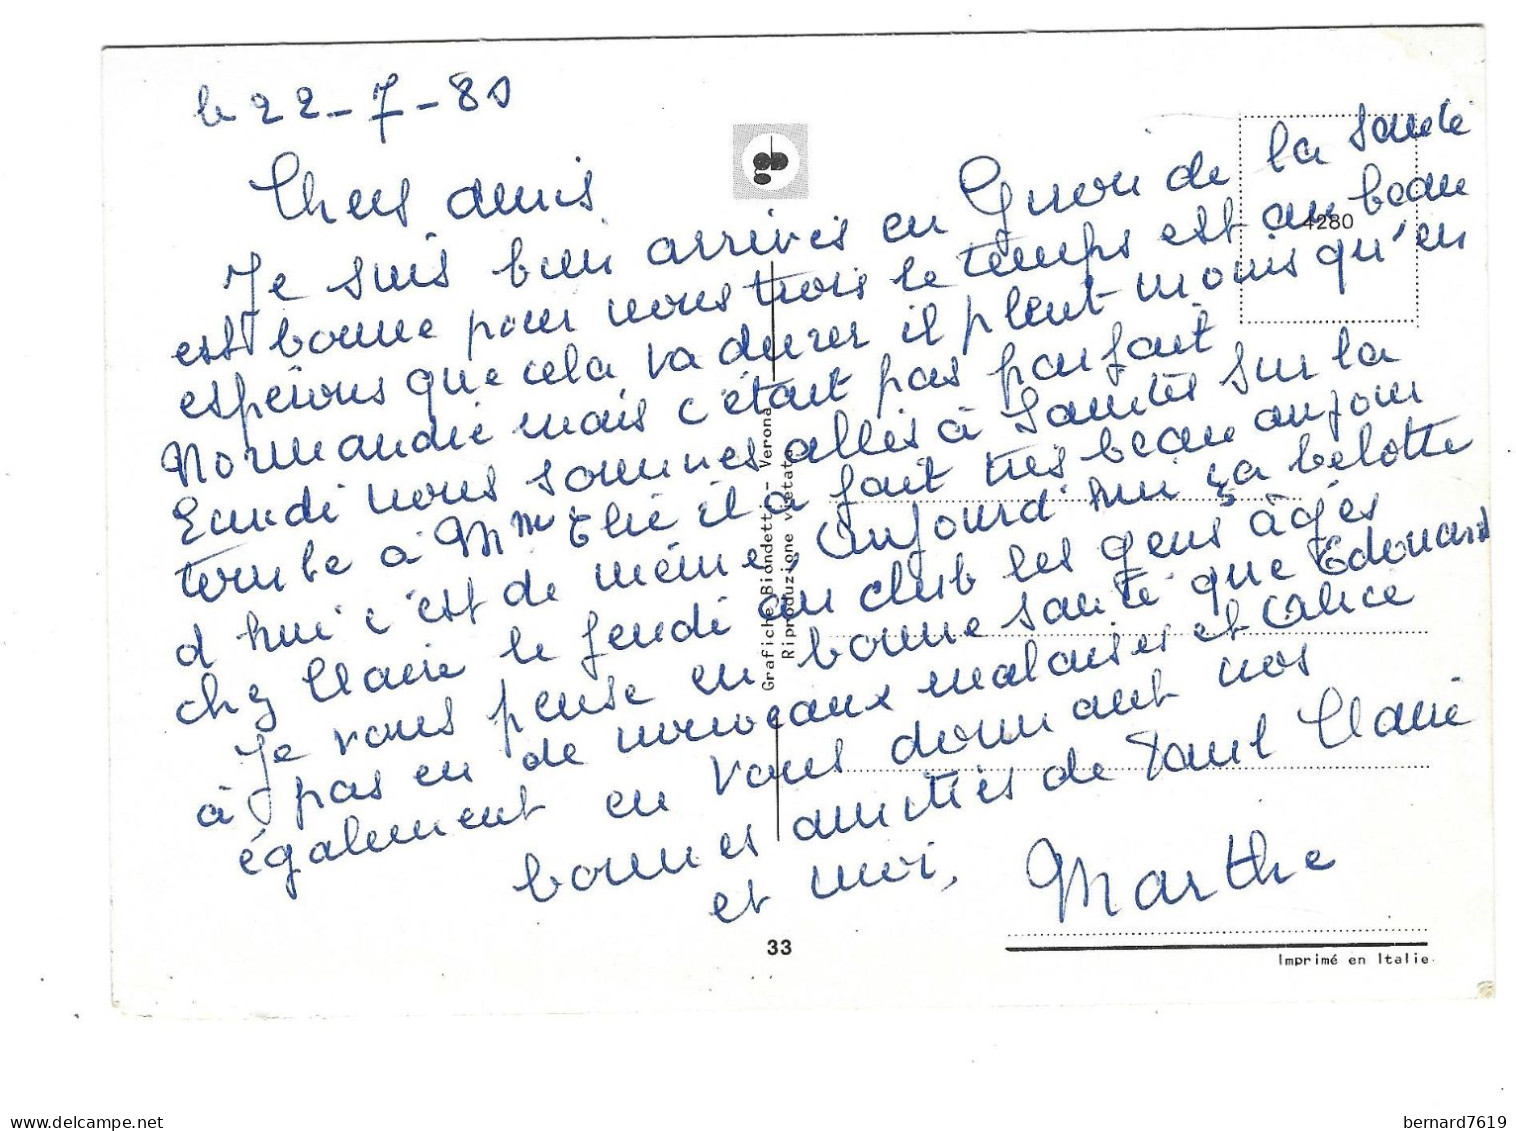 le 22-7-80
Chers amis
Je suis bien arrivés en de la santé
est bonne pour nous trois le temps est au beau
espérons que cela va durer il pleut moins qu'en
Normandie mais c'était pas parfait
nous sommes allés à Saintes sur la
tombe à Mme Elie il a fait très beau aujour
d hui c'est de même, aujourd'hui ça belotte
chez Claire le jeudi au club les gens âgés
Je vous pense en bonne santé que Edouard
à pas eu de nouveaux malaises et Calice
également en vous donnant nos
bonnes amitiés de Paul Claire
et moi, Marthe
4280
Grafiche Biondetti - Verona
Riproduzione vietata
33
Imprimé en Italie
bernard7619